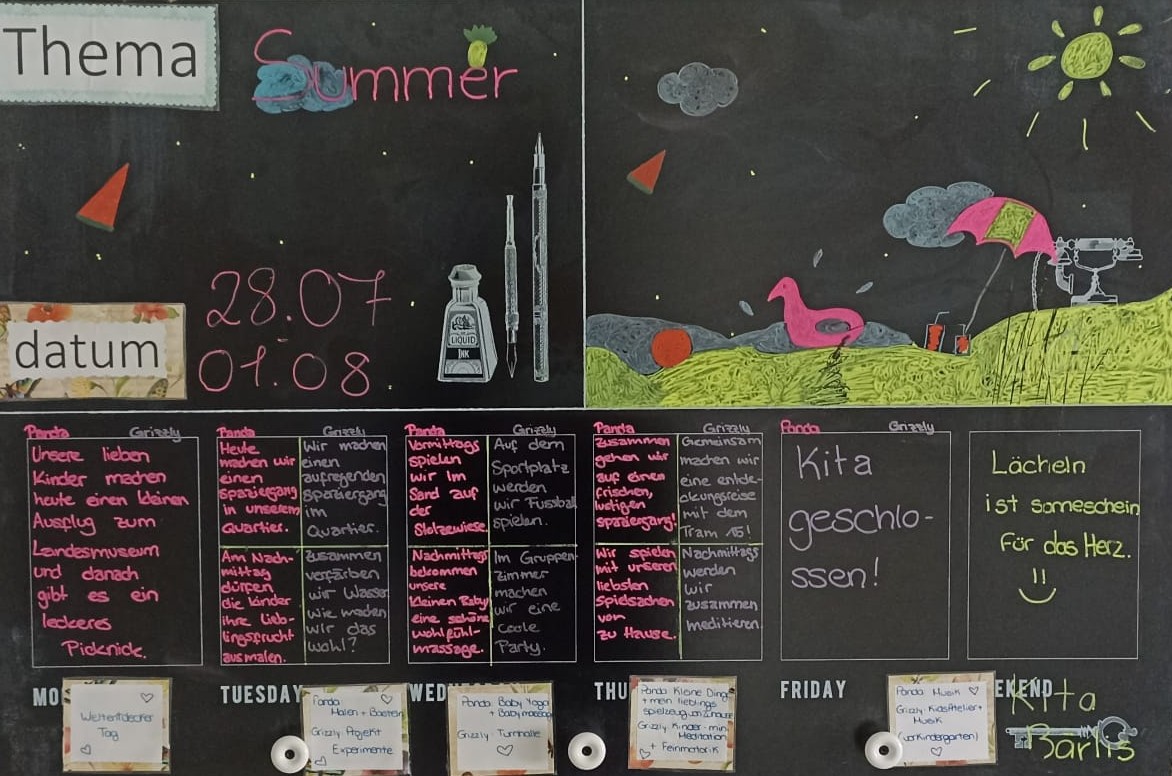 Thema
Summer
28.07
01.08
datum
LIQUID
INK
Panda Grizzly
Unsere lieben
Kinder machen
heute einen kleinen
Ausflug zum
Landesmuseum
und danach
gibt es ein
leckeres
Picknick.
Panda Grizzly
Heute
machen wir
einen
spaziergang
in unserem
Quartier.
Wir machen
einen
aufregenden
spaziergang
im
Quartier.
Am Nach-
mittag
dürfen
die Kinder
ihre Lieb-
lingsfrucht
ausmalen.
zusammen
verfärben
wir Wasser
Wie machen
wir das
wohl?
Panda Grizzly
Vormittags
spielen
wir im
Sand auf
der
Stolzewiese.
Auf dem
Sportplatz
werden
wir Fussball
spielen.
Nachmittags
bekommen
unsere
kleinen Baby
eine schöne
wohlfühl-
massage.
Im Gruppen-
zimmer
machen
wir eine
coole
Party.
Panda Grizzly
zusammen
gehen wir
auf einen
frischen,
lustigen
spaziergang!
Gemeinsam
machen wir
eine entde-
ckungsreise
mit dem
Tram 15!
Wir spielen
mit unseren
liebsten
spielsachen
von
zu Hause.
Nachmittags
werden
wir
zusammen
meditieren.
Panda Grizzly
Kita
geschlo-
ssen!
Lächeln
ist sonneschein
für das Herz.
MO
Weltentdecker
Tag
TUESDAY
Panda
Malen + Basteln
Grizzly Projekt
Experimente
WED
Panda: Baby Yoga
+ Babymassage
Grizzly: Turnhalle
THU
Panda Kleine Dinge
+ mein lieblings
spielzeug von Zuhause
Grizzly: Kinder-min
Meditation
+ Feinmotorik
FRIDAY
Panda Musik
Grizzly: KidsAtelier+
Musik
(vorkindergarten)
EKEND
Kita
Bärlis